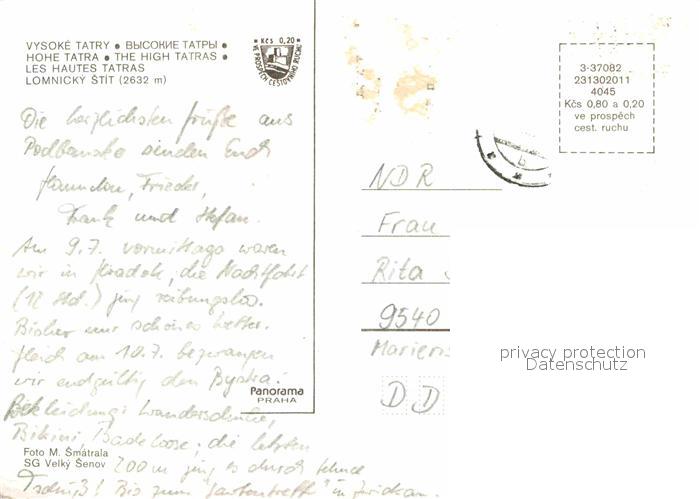 VYSOKÉ TATRY • ВЫСОКИЕ ТАТРЫ •
HOHE TATRA • THE HIGH TATRAS •
LES HAUTES TATRAS
LOMNICKÝ ŠTÍT (2632 m)
• Kčs 0,20 •
VE PROSPĚCH CESTOVNÍHO RUCHU
3-37082
231302011
4045
Kčs 0,80 a 0,20
ve prospěch
cest. ruchu
Die herzlichsten Grüße aus
Podbanske senden Euch
Hannelore, Frieder,
Frank und Stefan.
Am 9.7. vormittags waren
wir in Hradok, die Nachtfahrt
(12 Std.) ging reibungslos.
Bisher nur schönes Wetter.
Gleich am 10.7. bezwangen
wir endgültig den Bystra!
Bekleidung: Wanderschuhe,
Bikini, Badehose; die letzten
200 m ging es durch Schnee
Tschüß! Bis zum "Gartentreff" in Zwickau.
NDR
Frau
Rita
9540
DD
Panorama
PRAHA
Foto M. Šmátrala
SG Velký Šenov
privacy protection
Datenschutz